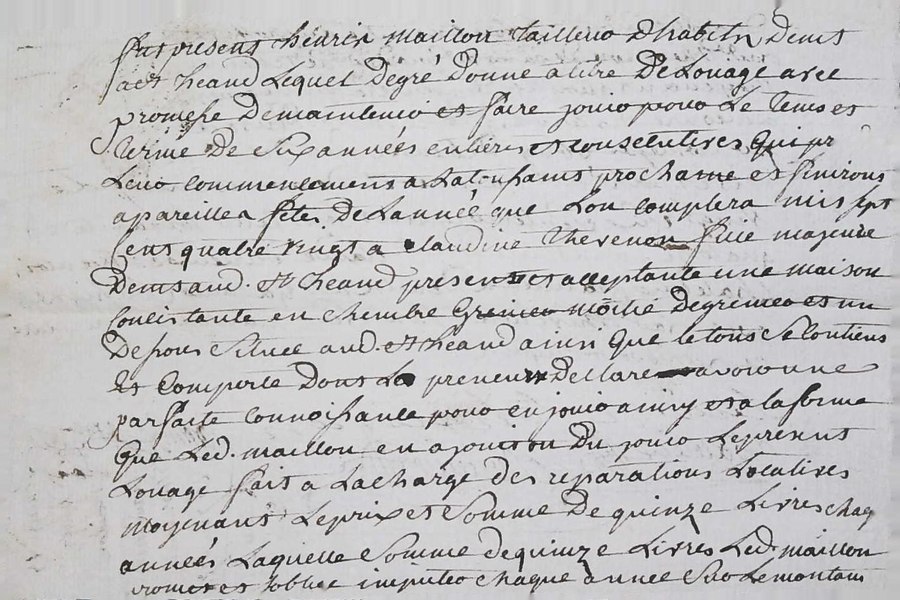 fut present henrix maillon tailleur dhabits Demt
a St heand Lequel Degré Donne a titre De Louage avec
promesse De maintenir et faire jouir pour Le tems et
terme De Six années entieres et consecutives qui pr
commencement a La toussaint prochaine et finirons
a pareille fete De Lannée que Lon comptera mil sept
cent quatre vingt a claudine thevenon fille majeure
Demt aud. St heand presente et acceptante une maison
Consistante en chembre Grenier moitié De grenier et un
De four Situee aud. St heand ainsi que le tout Se Contiens
Et Comporte Dont La preneuse Declare avoir une
parfaite connoissance pour en jouir ainsy et a la forme
Que Led. maillon en a jouit ou Du jouir Le present
Louage fait a La charge Des reparations Locatives
moyenant Le prix et Somme De quinze Livres chaq
année Laquelle Somme De quinze Livres Led. maillon
promet et Soblige imputer chaque année Sur Le montant